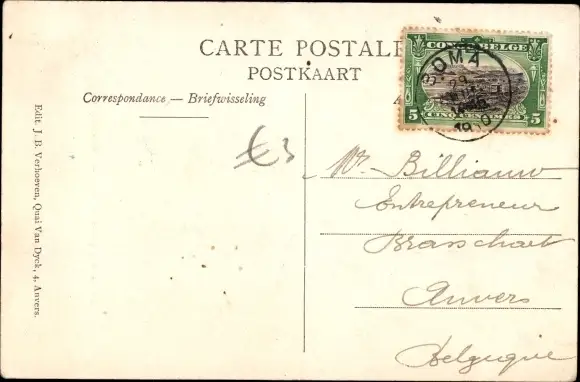 CARTE POSTALE
POSTKAART
Correspondance — Briefwisseling
CONGO BELGE
BOMA
5 CINQ CENTIMES 5
€3
Mr. Billiauw
Entrepreneur
Brasschaet
Anvers
Belgique
Edit. J. B. Verhoeven, Quai Van Dyck, 4, Anvers.